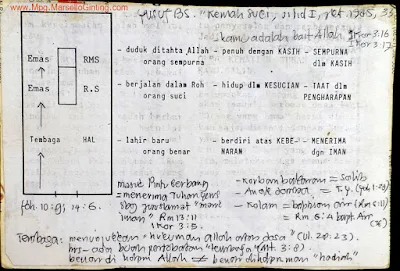 www.Mpg.MarselloGinting.com
Jusuf BS. "Kemah Suci, Jilid I, 1985, 35
Kamu adalah bait Allah. I Kor 3:16
I Kor 3:17
Emas RMS - duduk ditahta Allah - penuh dengan KASIH - SEMPURNA
orang sempurna dlm KASIH
Emas R.S - berjalan dalam Roh - hidup dlm KESUCIAN - TAAT dlm
orang suci PENGHARAPAN
Tembaga HAL - lahir baru - berdiri atas KEBE- - MENERIMA
orang benar NARAN dgn IMAN
masuk Pintu Gerbang - Korban bakaran = salib
= menerima Tuhan Yesus - Anak domba = T.Y. (Yoh 1:29)
sbag juruslamat "mant - Kolam = baptisan air (Rm 6:11)
Yoh. 10:9; 14:6. iman" Rm 13:11 = Rm 6:4 bapt. Air
I Kor 3:5
Tembaga: menunjukkan "hukuman Allah atas dosa" (Ul. 28:23).
hrs ada pertobatan
berdiri di halaman Allah ≠